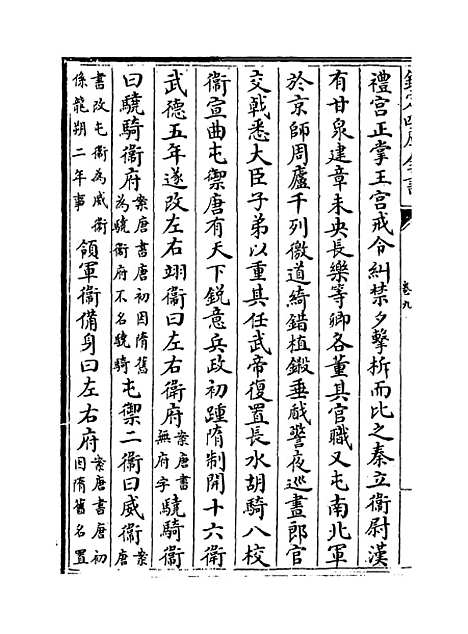 欽定四庫全書
卷九
禮宫正掌王宫戒令糾禁夕擊柝而比之秦立衛尉漢
有甘泉建章未央長樂等卿各董其官職又屯南北軍
於京師周廬千列徼道綺錯植鎩垂㦸警夜巡晝郎官
交㦸悉大臣子弟以重其任武帝復置長水胡騎八校
衛宣曲屯禦唐有天下鋭意兵政初踵隋制開十六衛
武德五年遂改左右翊衛曰左右衛府案唐書無府字驍騎衛
曰驍騎衛府案唐書唐初因隋舊為驍衛府不名驍騎屯禦二衛曰威衛案唐
書改屯衛為威衛係龍朔二年事領軍衛備身曰左右府案唐書唐初因隋舊名置